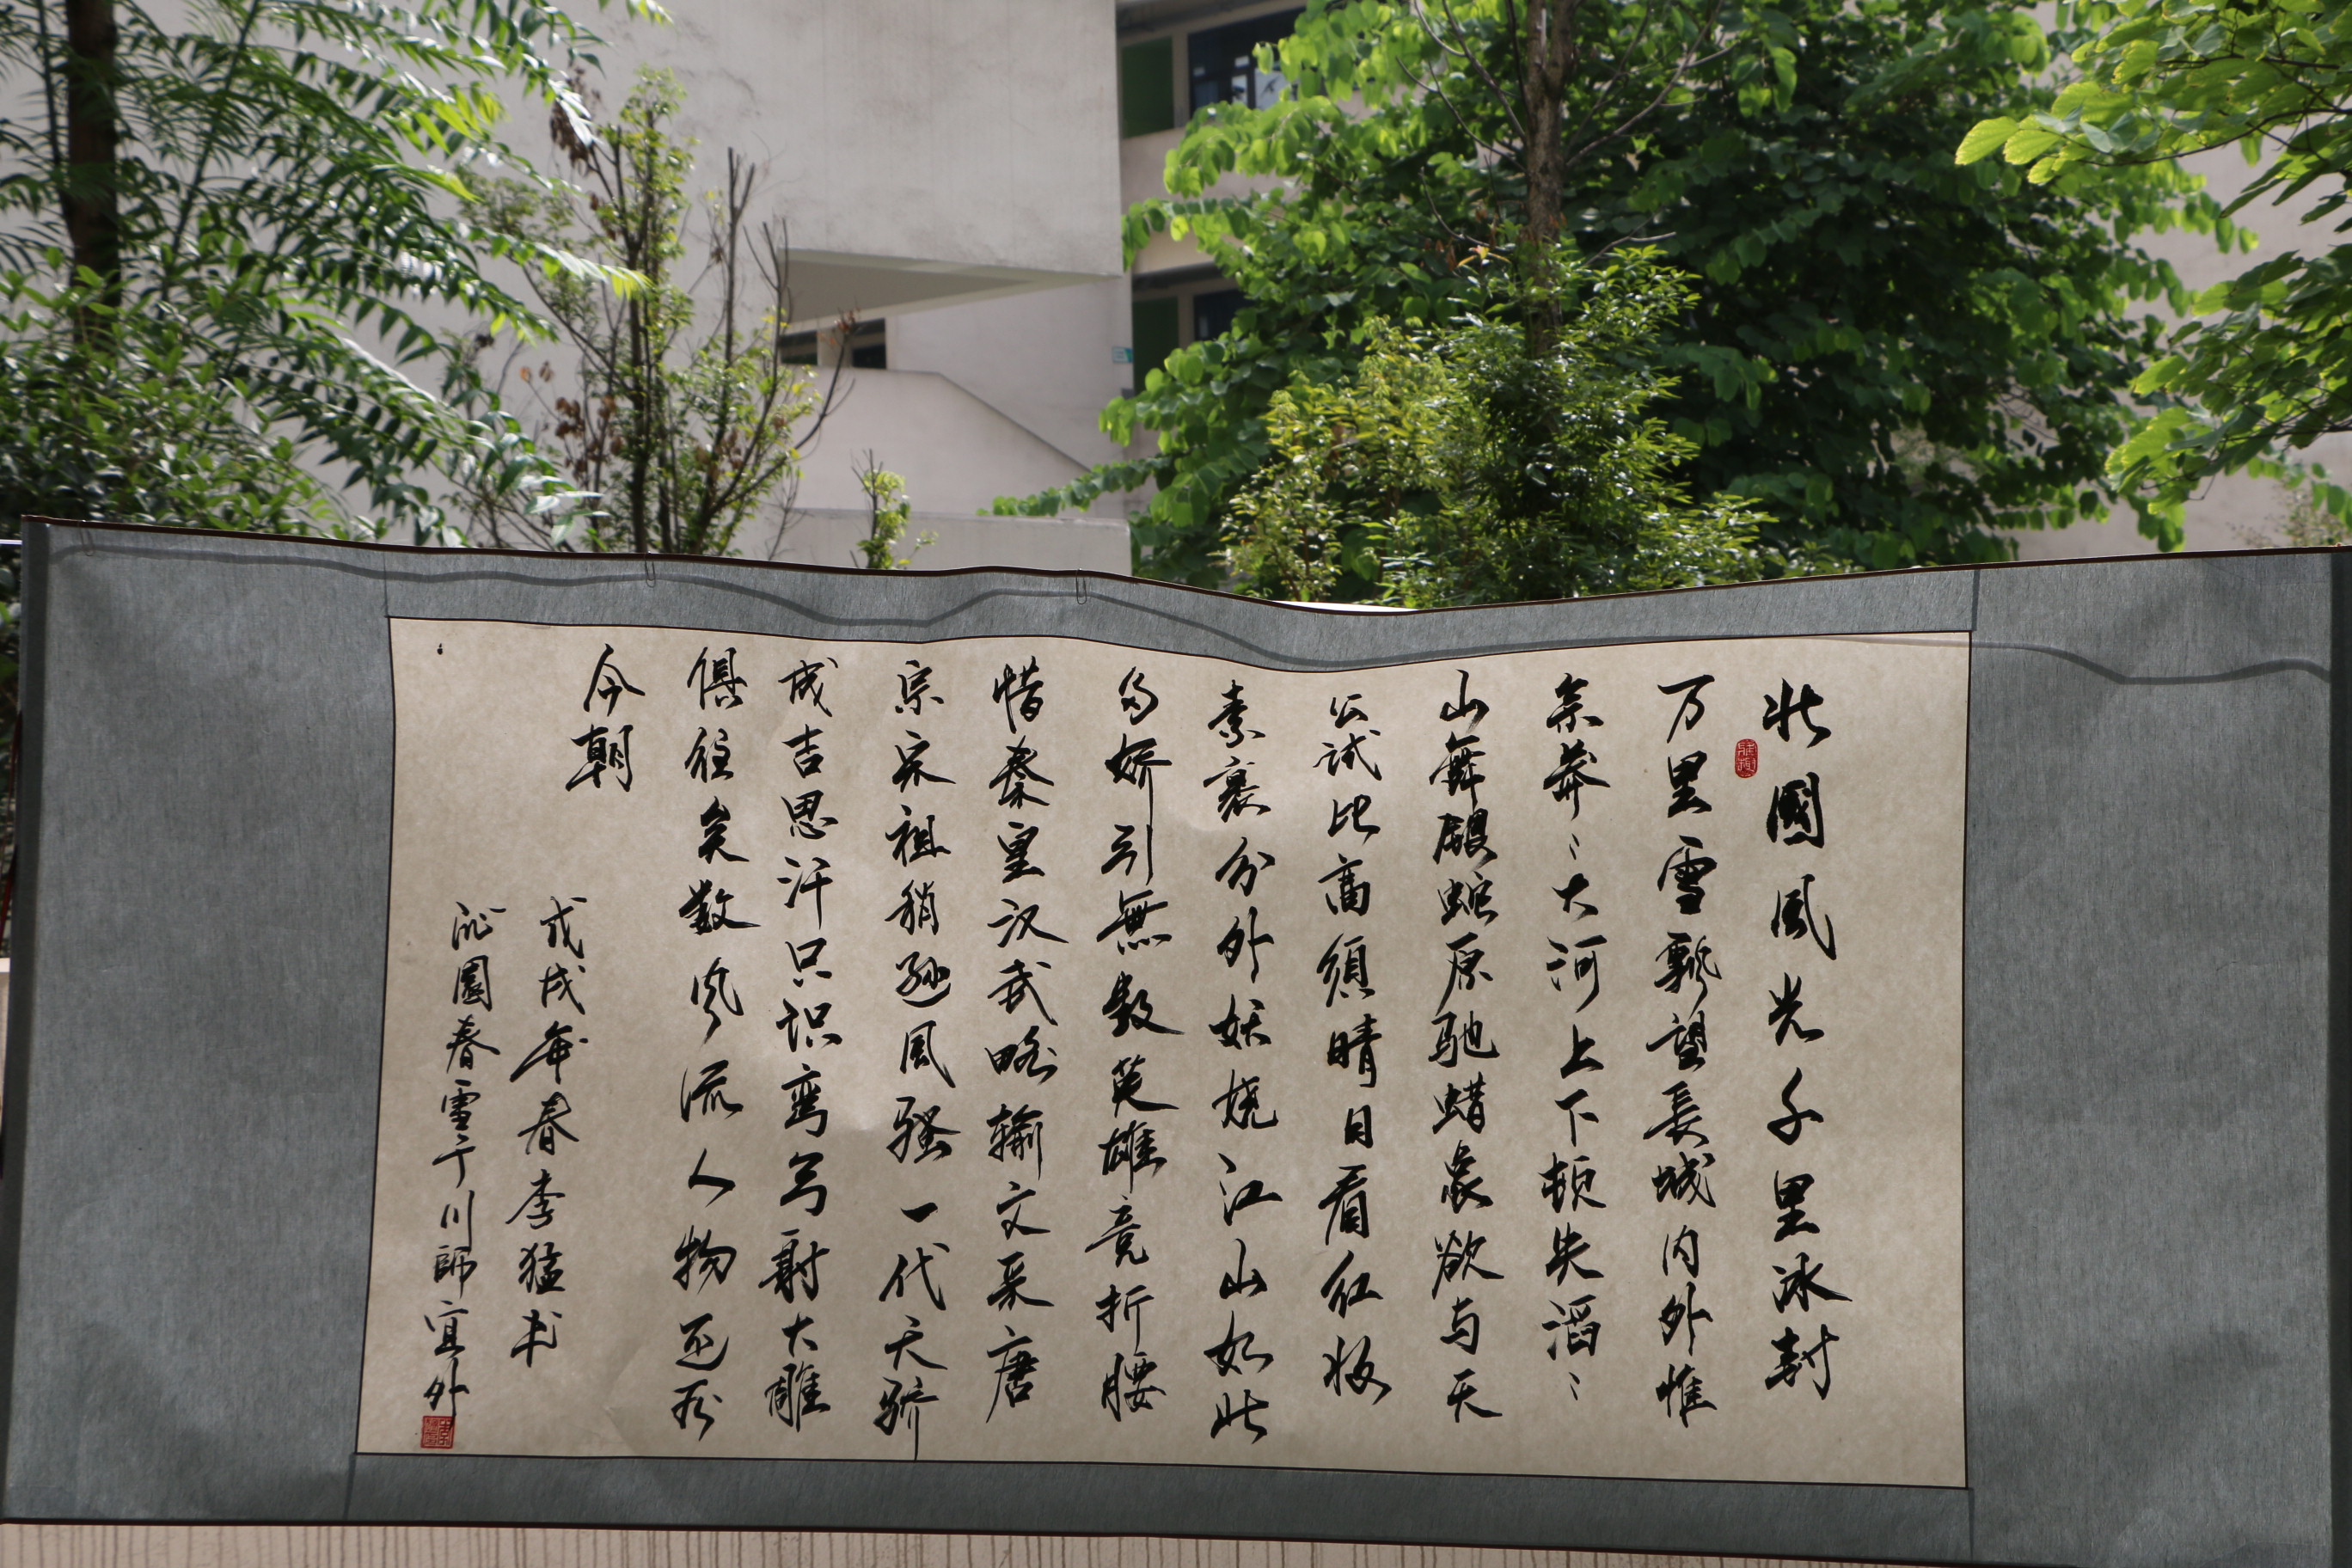 北國風光千里冰封
万里雪飘望長城内外惟
余莽〻大河上下顿失滔〻
山舞银蛇原驰蜡象欲与天
公试比高须晴日看红妆
素裹分外妖娆江山如此
多娇引無数英雄竞折腰
惜秦皇汉武略输文采唐
宗宋祖稍逊风骚一代天骄
成吉思汗只识弯弓射大雕
俱往矣数风流人物还看
今朝
戊戌年春李猛书
沁園春雪于川師宜外